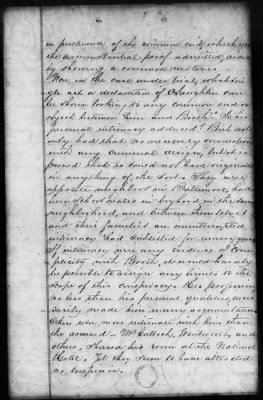 in pursuance of the common end, which you
the circumstantial proof admitted, aided
by showing a common motive.
Now, in the case under trial, what sin-
gle act or declaration of O'Laughlin can
be shown looking to any common end or
object between him and Booth? Is his
personal intimacy adduced? But not
only had that no necessary connection
with any criminal design, but it is
proved that it could not have originated
in anything of the sort. They were
opposite neighbors in Baltimore, had
been schoolmates in boyhood in the same
neighborhood, and between themselves
and their families an uninterrupted
intimacy had subsisted for many years.
If intimacy were any evidence of com-
plicity with Booth, it would hardly
be possible to assign any limits to the
scope of this conspiracy. His profession
no less than his personal qualities, neces-
sarily made him many acquaintances.
Others were more intimate with him than
the accused. McCulloch, Wentworth, and
others, shared his room at the National
Hotel. Yet they seem to have attracted
no suspicion.